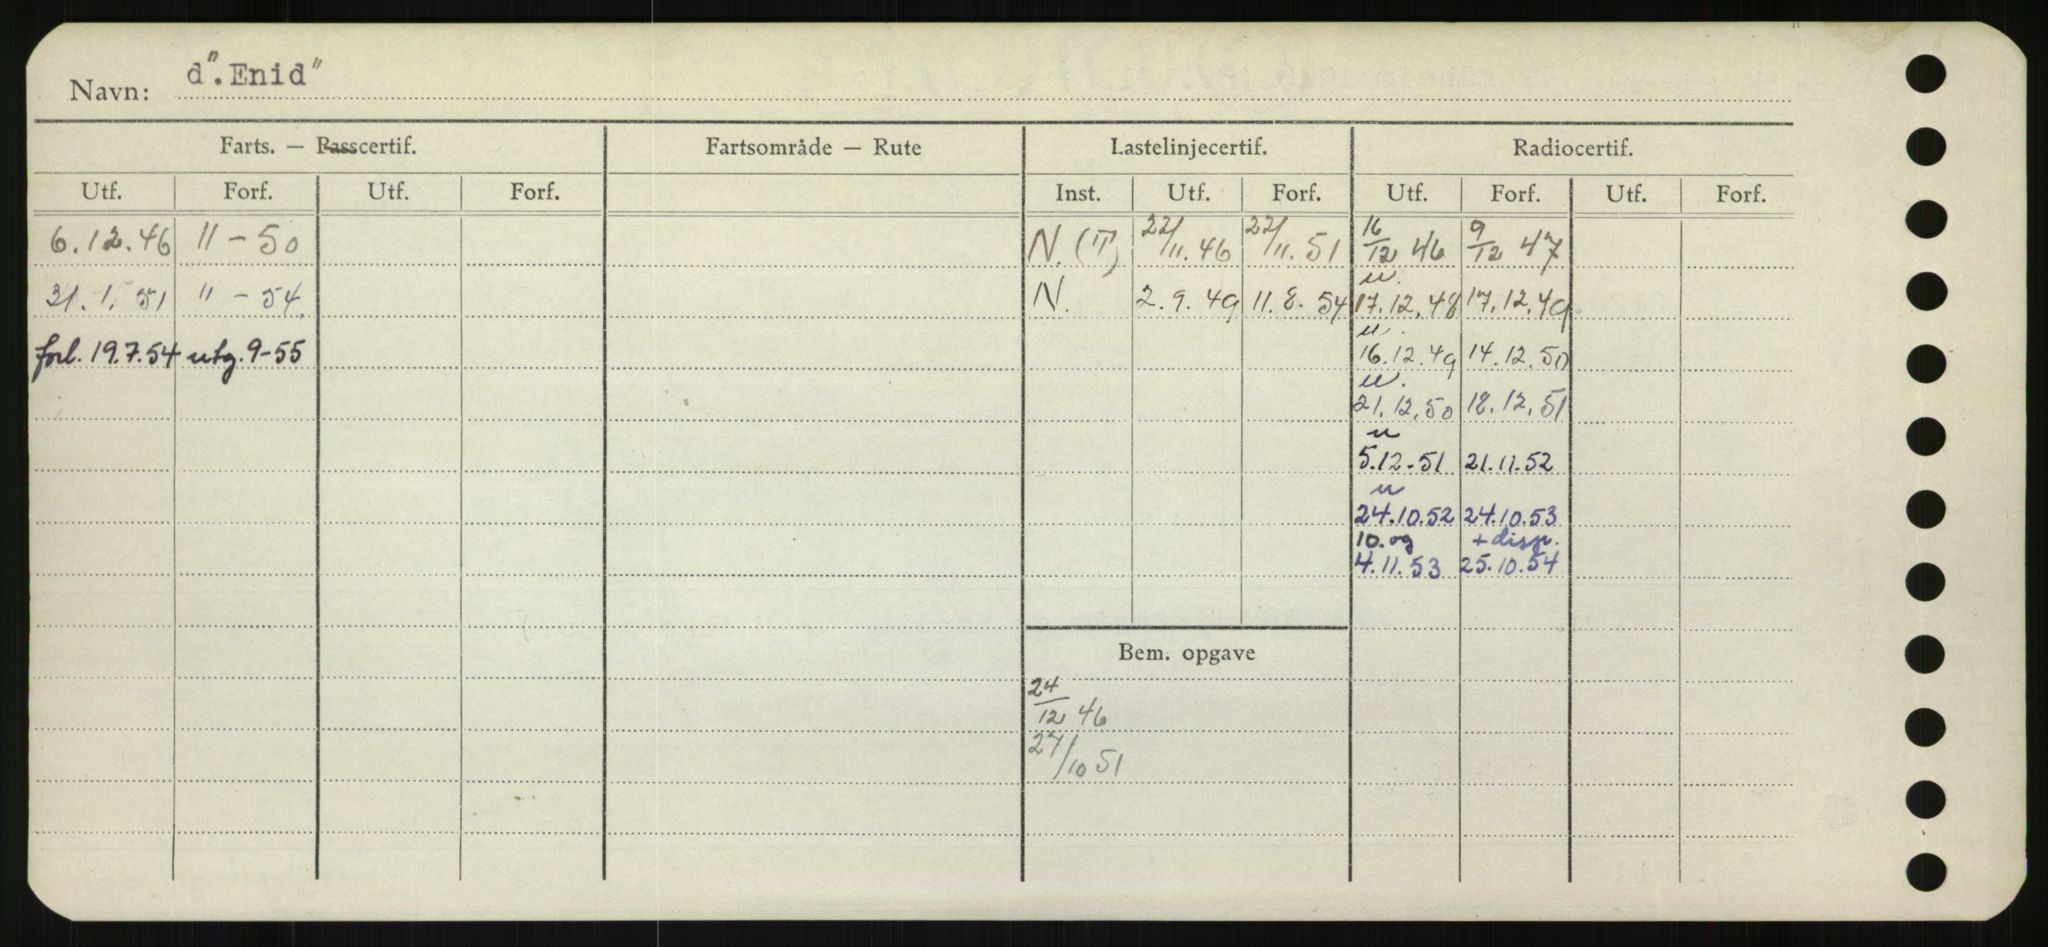 Navn: d".Enid"
Farts. — Passcertif. Fartsområde — Rute Lastelinjecertif. Radiocertif.
Utf. Forf. Utf. Forf. Inst. Utf. Forf. Utf. Forf. Utf. Forf.
6.12.46 11-50 N. (II) 22/11.46 22/11.51 16/12 46 9/12 47
u.
31.1.51 " -54. N. 2.9.49 11.8.54 17.12.48 17.12.49
u.
forl. 19.7.54 utg. 9-55 16.12.49 14.12.50
u.
21.12.50 18.12.51
u
5.12-51 21.11.52
u
24.10.52 24.10.53
10. og + disp.
4.11.53 25.10.54
Bem. opgave
24/12 46
27/10 51